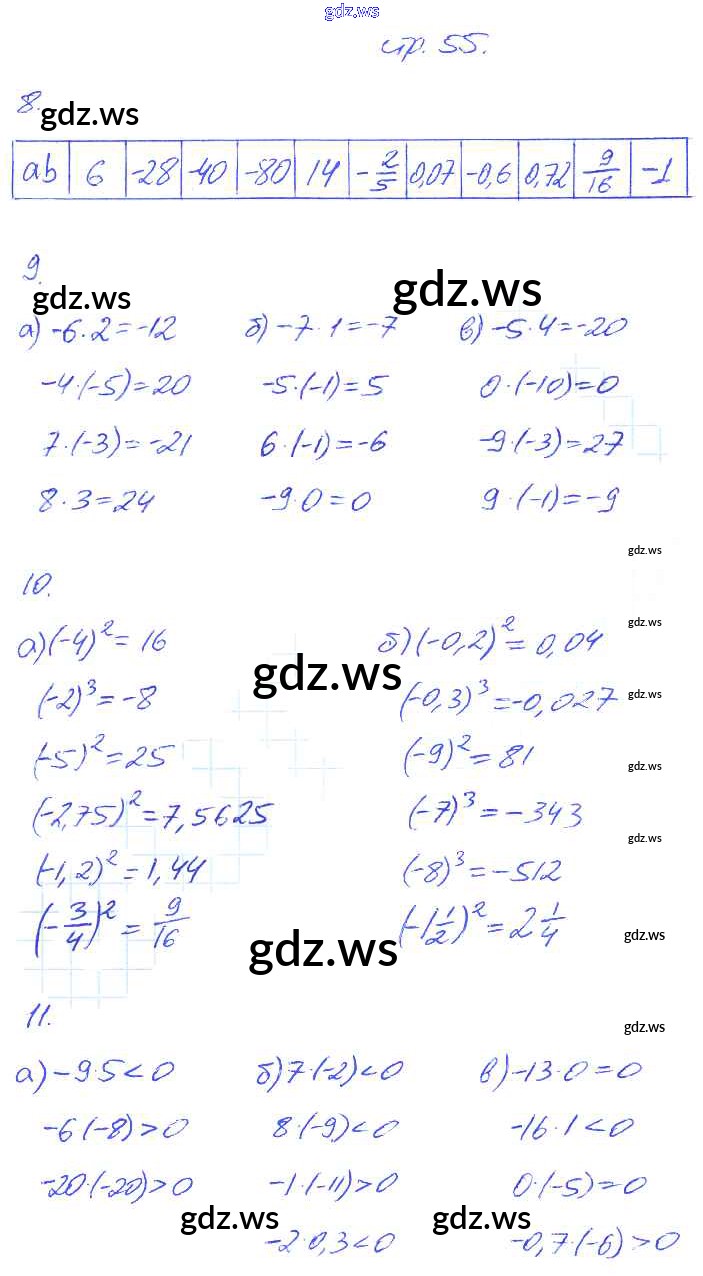 gdz.ws
стр. 55.
8.
gdz.ws
ab 6 -28 -40 -80 14 -2/5 0,07 -0,6 0,72 9/16 -1
9.
gdz.ws gdz.ws
а) -6·2=-12 б) -7·1=-7 в) -5·4=-20
-4·(-5)=20 -5·(-1)=5 0·(-10)=0
7·(-3)=-21 6·(-1)=-6 -9·(-3)=27
8·3=24 -9·0=0 9·(-1)=-9
gdz.ws
10.
gdz.ws
а) (-4)²=16 б) (-0,2)²=0,04
gdz.ws
(-2)³=-8 (-0,3)³=-0,027 gdz.ws
(-5)²=25 (-9)²=81 gdz.ws
(-2,75)²=7,5625 (-7)³=-343
gdz.ws
(-1,2)²=1,44 (-8)³=-512
(-3/4)²=9/16 (-1 1/2)²=2 1/4 gdz.ws
gdz.ws
11.
gdz.ws
а) -9·5<0 б) 7·(-2)<0 в) -13·0=0
-6(-8)>0 8·(-9)<0 -16·1<0
-20·(-20)>0 -1·(-11)>0 0·(-5)=0
gdz.ws gdz.ws
-2·0,3<0 -0,7·(-6)>0